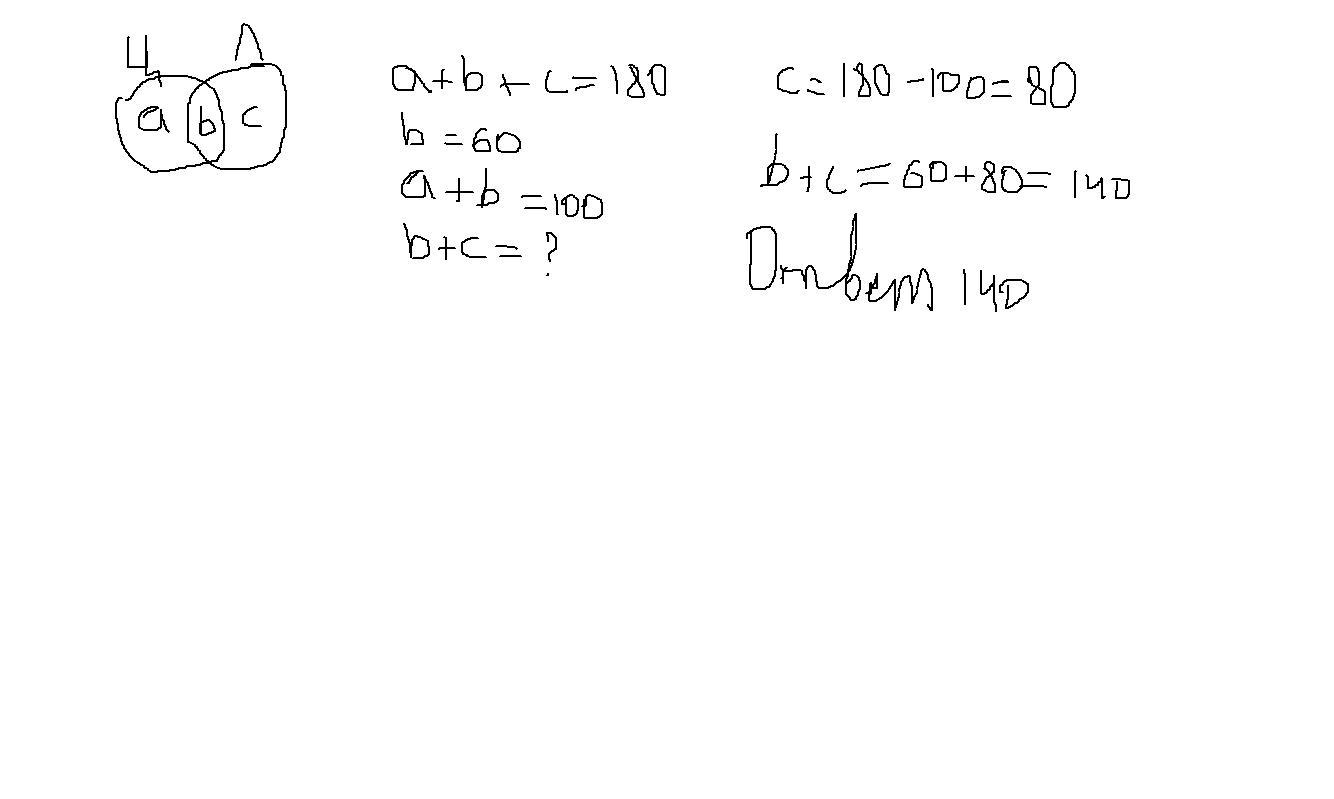 Ц Л
a b c
a+b+c=180
b=60
a+b=100
b+c=?
c=180-100=80
b+c=60+80=140
Ответ 140